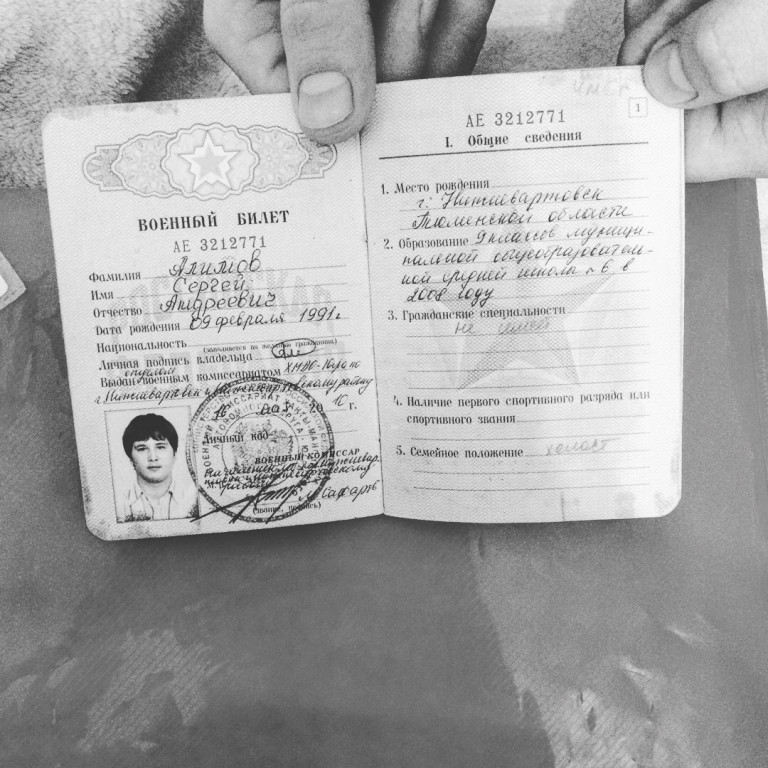 ВОЕННЫЙ БИЛЕТ
АЕ 3212771
Фамилия Алимов
Имя Сергей
Отчество Андреевич
Дата рождения 09 февраля 1991г
Национальность
(заполняется по желанию гражданина)
Личная подпись владельца
отделом
Выдан военным комиссариатом ХМАО-Югры
г. Нижневартовск и Нижневартовскому району
10 г.
Личный код
ВОЕННЫЙ КОМИССАР
М.
Сафаров
(звание, подпись)
1
АЕ 3212771
I. Общие сведения
1. Место рождения
г. Нижневартовск
Тюменской области
2. Образование 9 классов муници-
пальной общеобразователь-
ной средней школы №6 в
2008 году
3. Гражданские специальности
не имеет
4. Наличие первого спортивного разряда или
спортивного звания
5. Семейное положение холост